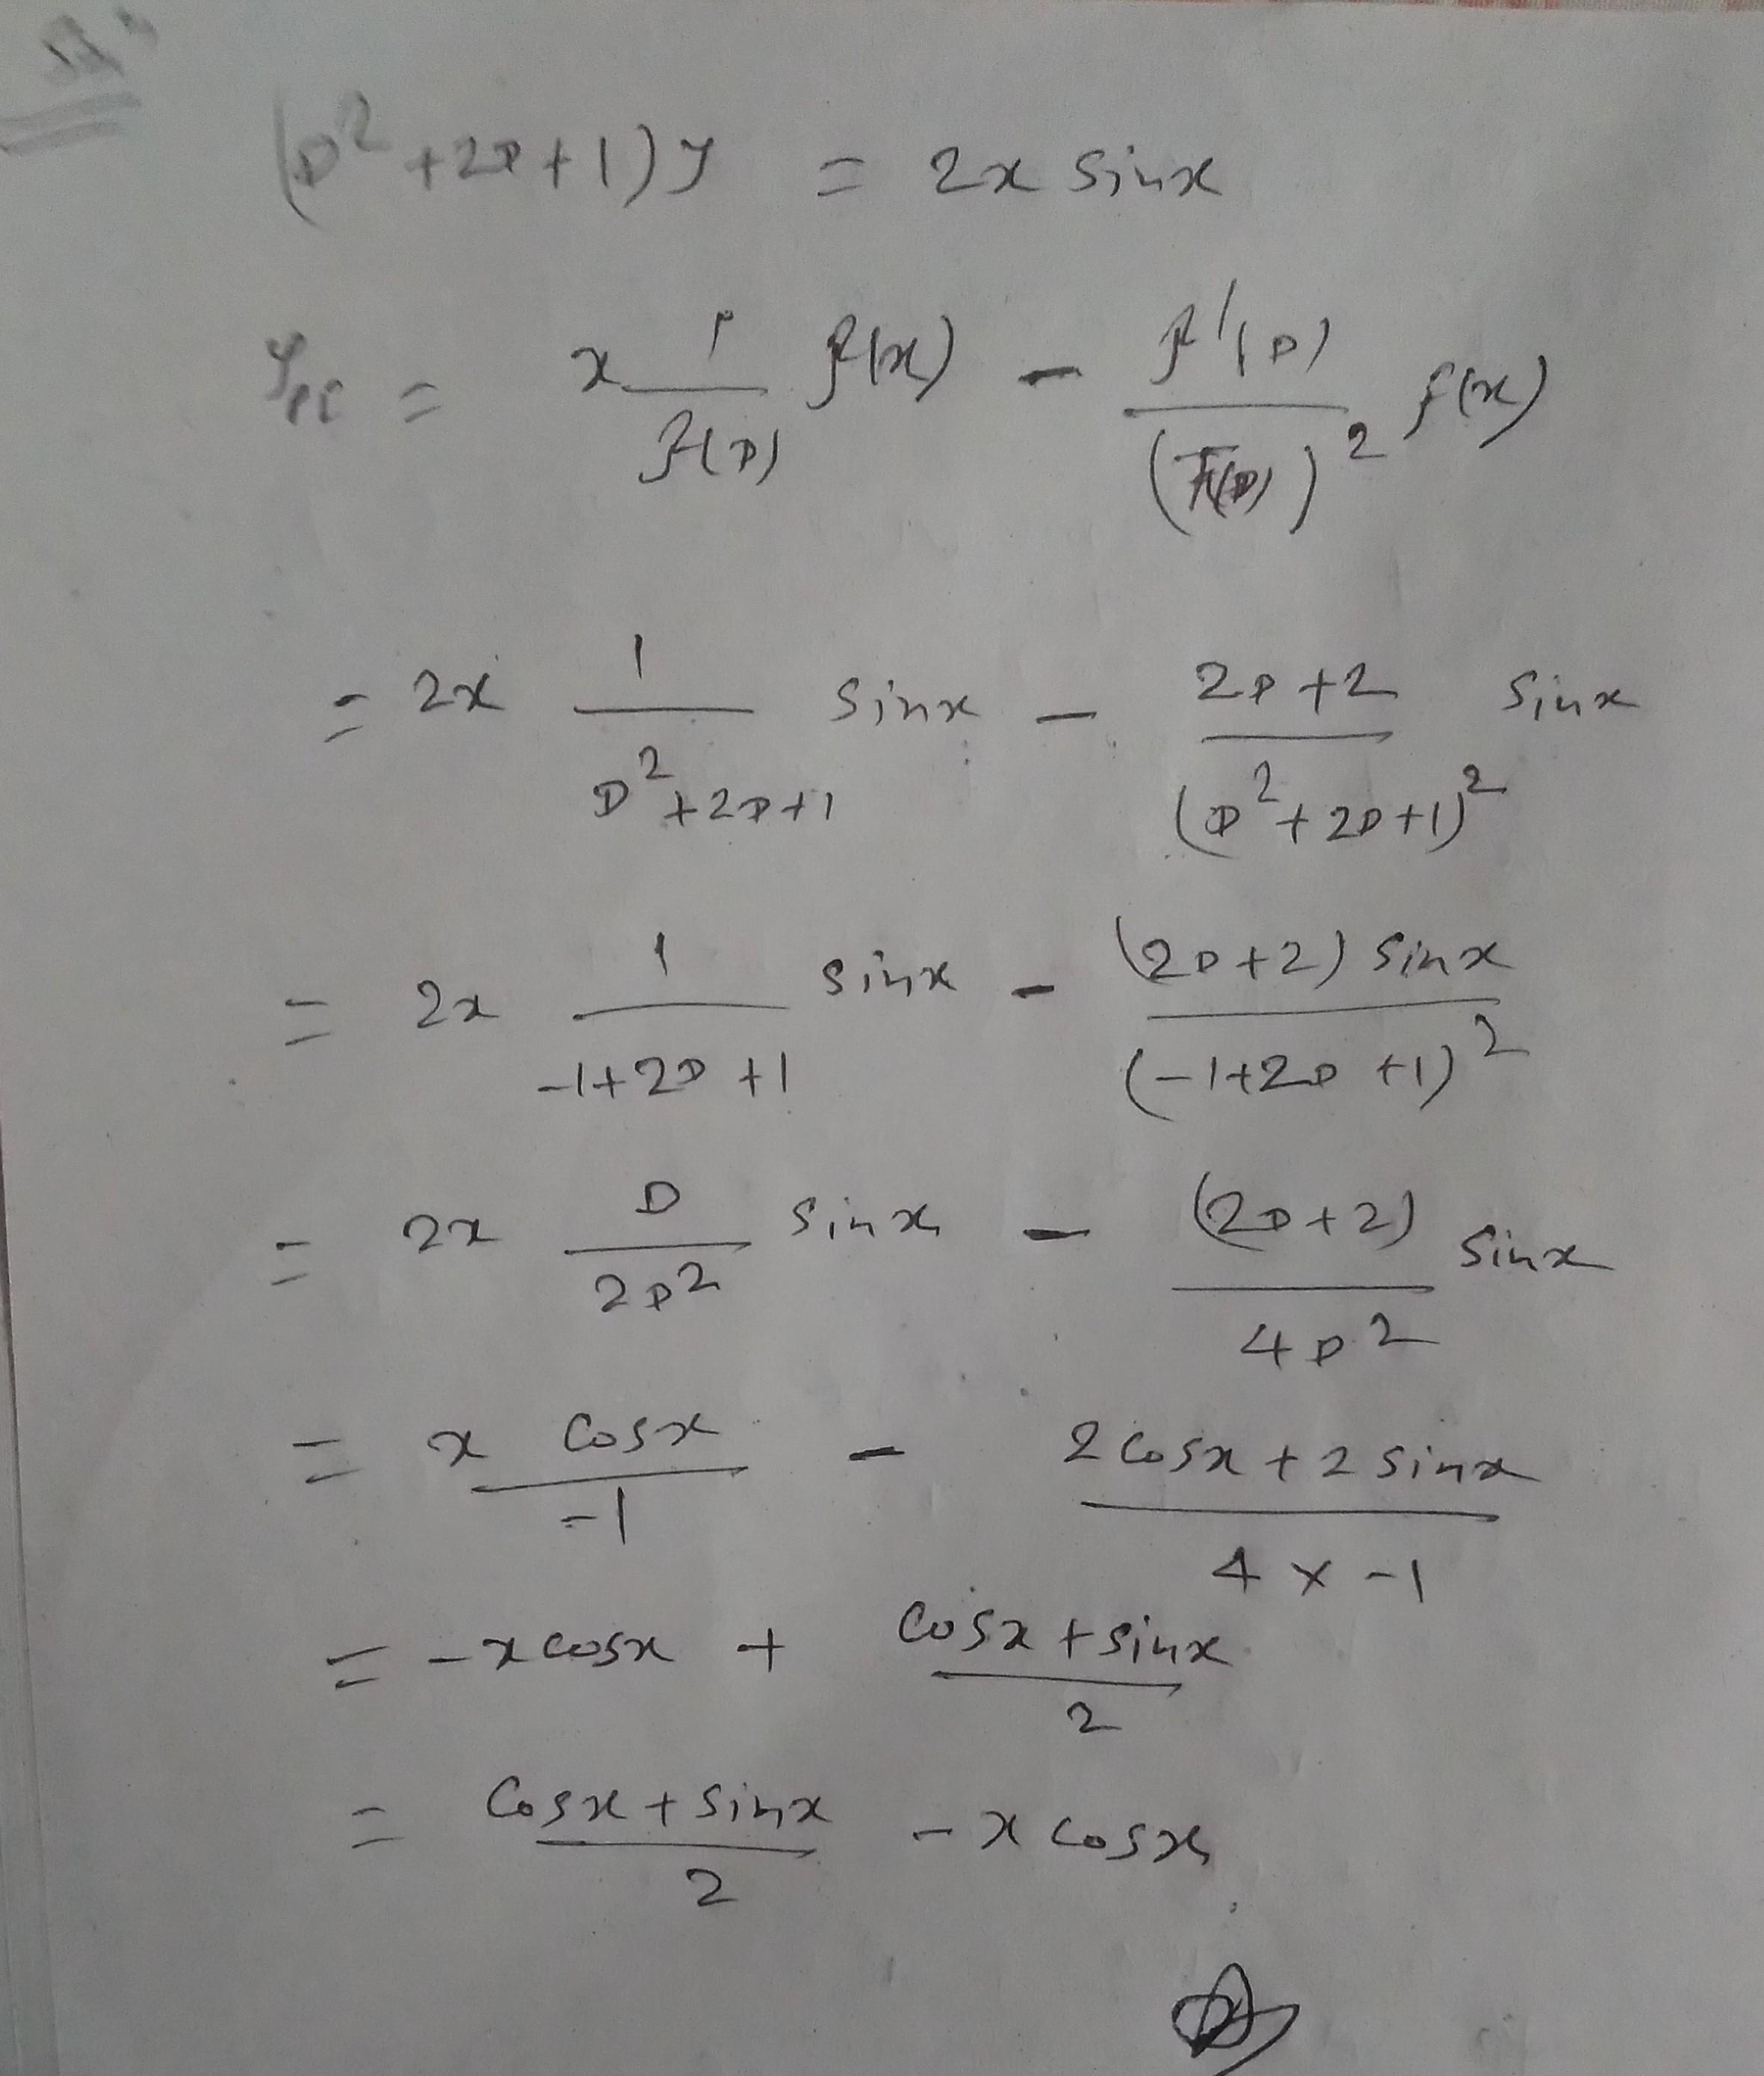 (D² + 2D + 1) y = 2x sinx
y = x 1/f(D) f(x) - f'(D)/(F(D))² f(x)
= 2x 1/(D² + 2D + 1) sinx - (2D + 2)/(D² + 2D + 1)² sinx
= 2x 1/(-1 + 2D + 1) sinx - (2D + 2) sinx/(-1 + 2D + 1)²
= 2x D/2D² sinx - (2D + 2)/4D² sinx
= x cosx/-1 - (2 cosx + 2 sinx)/(4 x -1)
= -x cosx + (cosx + sinx)/2
= (cosx + sinx)/2 - x cosx